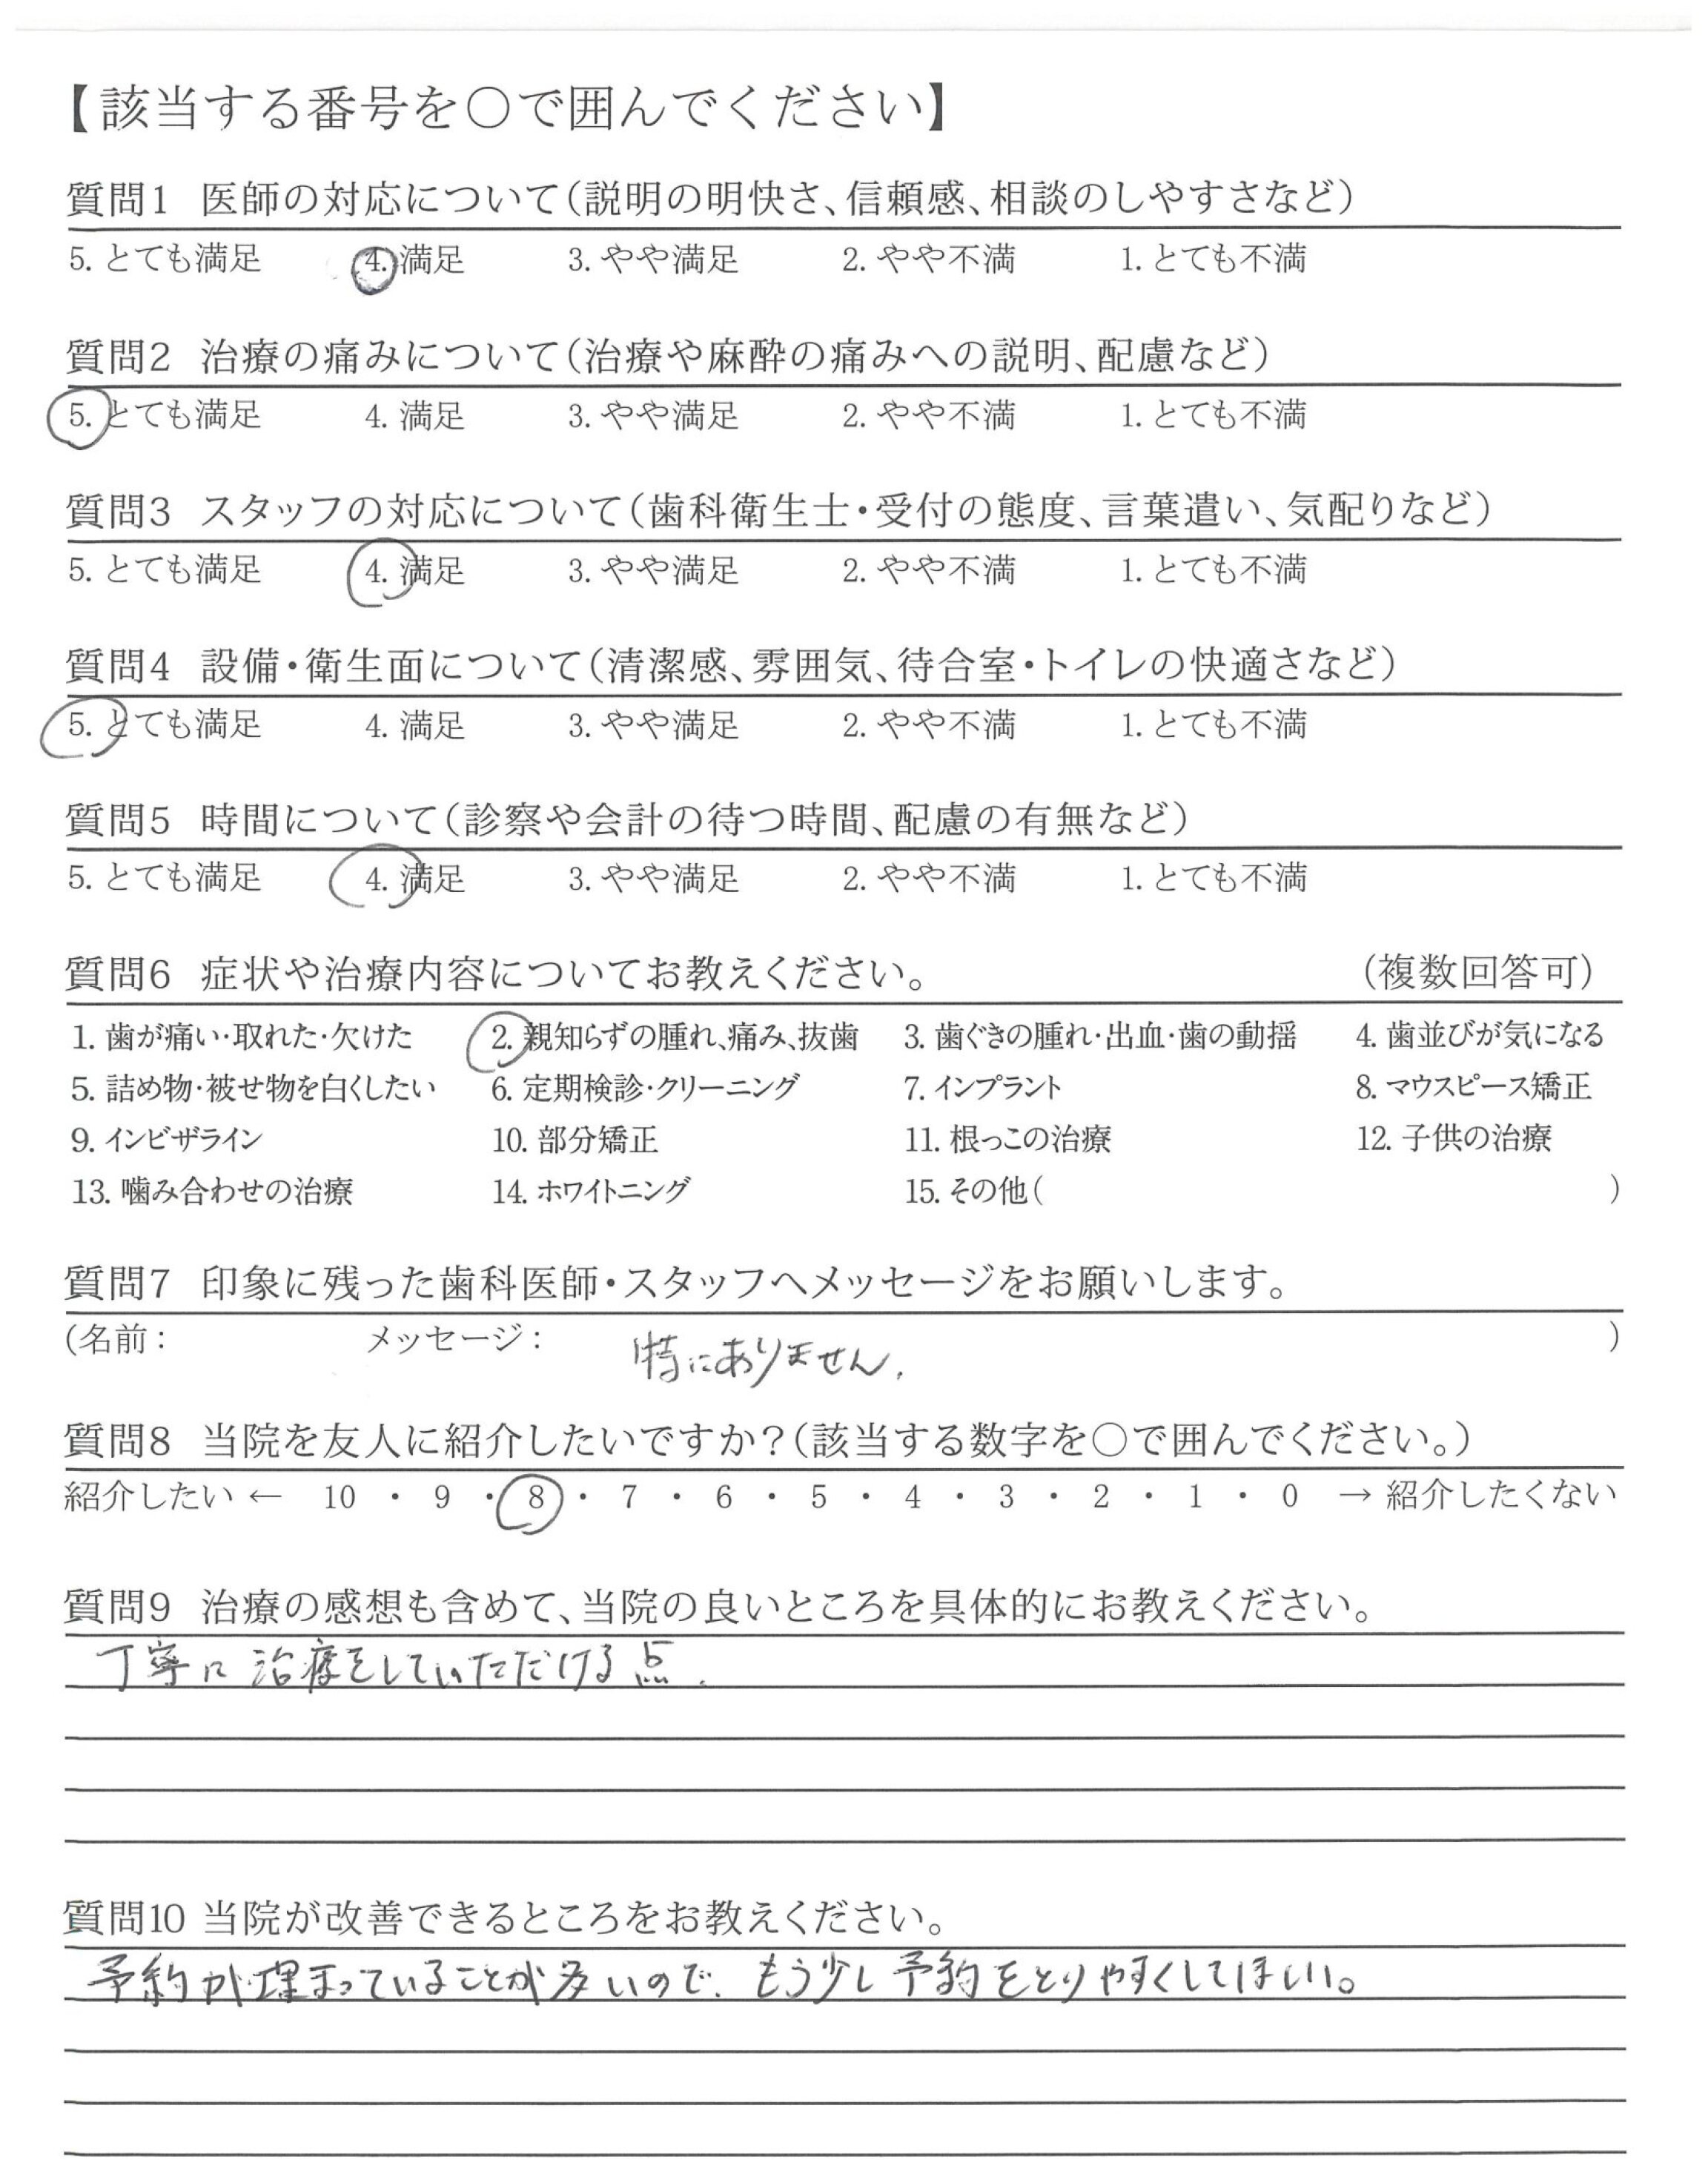 【該当する番号を○で囲んでください】
質問1 医師の対応について(説明の明快さ、信頼感、相談のしやすさなど)
5. とても満足 4. 満足 3. やや満足 2. やや不満 1. とても不満
質問2 治療の痛みについて(治療や麻酔の痛みへの説明、配慮など)
5. とても満足 4. 満足 3. やや満足 2. やや不満 1. とても不満
質問3 スタッフの対応について(歯科衛生士・受付の態度、言葉遣い、気配りなど)
5. とても満足 4. 満足 3. やや満足 2. やや不満 1. とても不満
質問4 設備・衛生面について(清潔感、雰囲気、待合室・トイレの快適さなど)
5. とても満足 4. 満足 3. やや満足 2. やや不満 1. とても不満
質問5 時間について(診察や会計の待つ時間、配慮の有無など)
5. とても満足 4. 満足 3. やや満足 2. やや不満 1. とても不満
質問6 症状や治療内容についてお教えください。 (複数回答可)
1. 歯が痛い・取れた・欠けた 2. 親知らずの腫れ、痛み、抜歯 3. 歯ぐきの腫れ・出血・歯の動揺 4. 歯並びが気になる
5. 詰め物・被せ物を白くしたい 6. 定期検診・クリーニング 7. インプラント 8. マウスピース矯正
9. インビザライン 10. 部分矯正 11. 根っこの治療 12. 子供の治療
13. 噛み合わせの治療 14. ホワイトニング 15. その他( )
質問7 印象に残った歯科医師・スタッフへメッセージをお願いします。
(名前: メッセージ: 特にありません. )
質問8 当院を友人に紹介したいですか?(該当する数字を○で囲んでください。)
紹介したい ← 10 ・ 9 ・ 8 ・ 7 ・ 6 ・ 5 ・ 4 ・ 3 ・ 2 ・ 1 ・ 0 → 紹介したくない
質問9 治療の感想も含めて、当院の良いところを具体的にお教えください。
丁寧に治療をしていただける点.
質問10 当院が改善できるところをお教えください。
予約が埋まっていることが多いので、もう少し予約をとりやすくしてほしい。